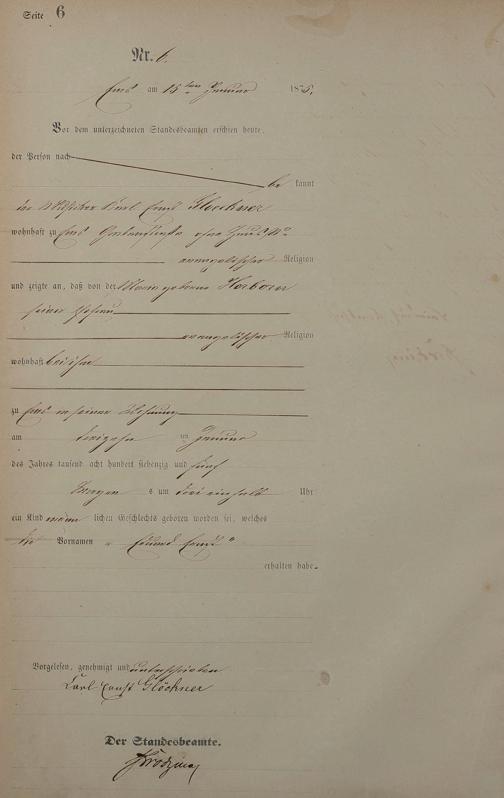 Seite 6
Nr. 6.
Ems am 15ten Januar 1875.
Vor dem unterzeichneten Standesbeamten erschien heute,
der Person nach
be kannt
der Karl Ernst Gloeckner
wohnhaft zu Ems ohne
evangelischer Religion
und zeigte an, daß von der Maria geborene
seiner Ehefrau
evangelischer Religion
wohnhaft bei ihm
zu Ems in seiner Wohnung
am dreizehn ten Januar
des Jahres tausend acht hundert siebenzig und fünf
Morgen s um drei einhalb Uhr
ein Kind männ lichen Geschlechts geboren worden sei, welches
die Vornamen " Eduard Ernst "
erhalten habe.
Vorgelesen, genehmigt und unterschrieben
Carl Ernst Glöckner
Der Standesbeamte.